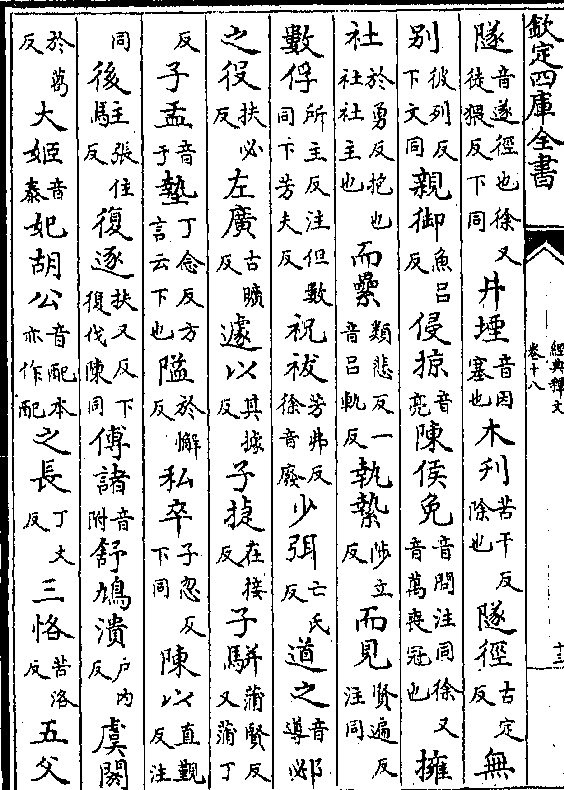 欽定四庫全書
經典釋文
卷十八
十三
隧音遂徑也徐又徒猥反下同井堙音因塞也木刋苦干反除也隧徑古定反無
别彼列反下文同親御魚吕反侵掠音亮陳侯免音問注同徐又音萬喪冠也擁
社於勇反抱也社社主也而纍類悲反一音吕軌反執縶陟立反而見賢遍反注同
數俘所主反注但數同下芳夫反祝祓芳弗反徐音廢少弭亡氏反道之音導邲
之役扶必反左廣古曠反遽以其據反子㨗在接反子駢蒲賢反又蒲丁
反子盂音于墊丁念反方言云下也隘於懈反私卒子忽反下同陳以直覲反注
同後駐張住反復逐扶又反下復伐陳同傅諸音附舒鳩潰户内反虞閼
於葛反大姬音泰妃胡公音配本亦作配之長丁丈反三恪苦洛反五父